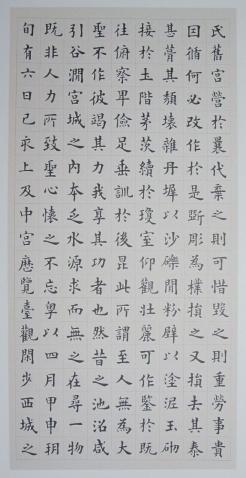 氏舊宮營於曩代棄之則可惜毀之則重勞事貴
因循何必改作於是斲彫為樸損之又損去其泰
甚葺其頹壞雜丹墀以沙礫間粉壁以塗泥玉砌
接於土階茅茨續於瓊室仰觀壯麗可作鑒於既
往俯察卑儉足垂訓於後昆此所謂至人無為大
聖不作彼竭其力我享其功者也然昔之池沼咸
引谷澗宮城之內本乏水源求而無之在尋一物
既非人力所致聖心懷之不忘粵以四月甲申朔
旬有六日己亥上及中宮歷覽臺觀閑步西城之